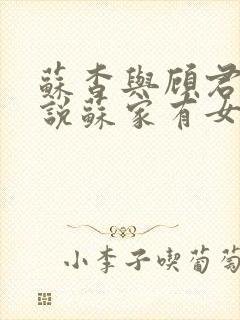 蘇杳與顧君
說蘇家有女
小李子喫葡萄